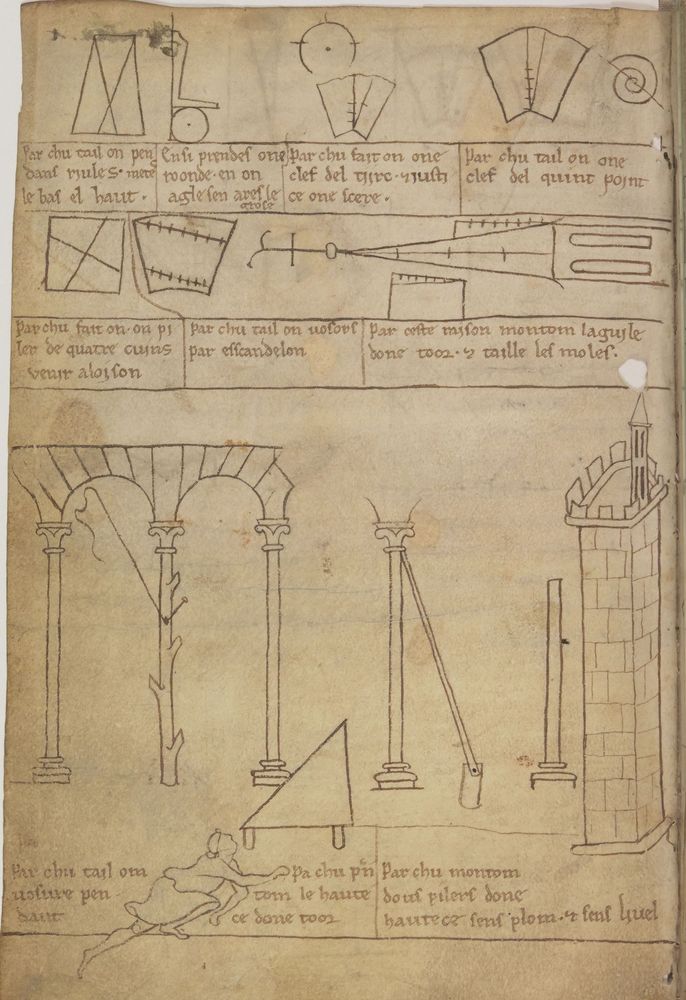 Par chu tail on pen
dans riules · mete
le bas el haut ·
Ensi prendes one
roonde · en on
agle sen ares le
grose
Par chu fait on one
clef del tirc · & justi
ce one scere ·
Par chu tail on one
clef del quint point
Par chu fait on · on pi
ler de quatre cuins
venir aloison
Par chu tail on vosors
par esscandelon
Par ceste raison montom laguile
done toor · & taille les moles ·
Par chu tail om
vosure pen
dant
Pa chu pñ
tom le haute
ce done toor
Par chu montom
dous pilers done
hautece sens plom · & sens liuel